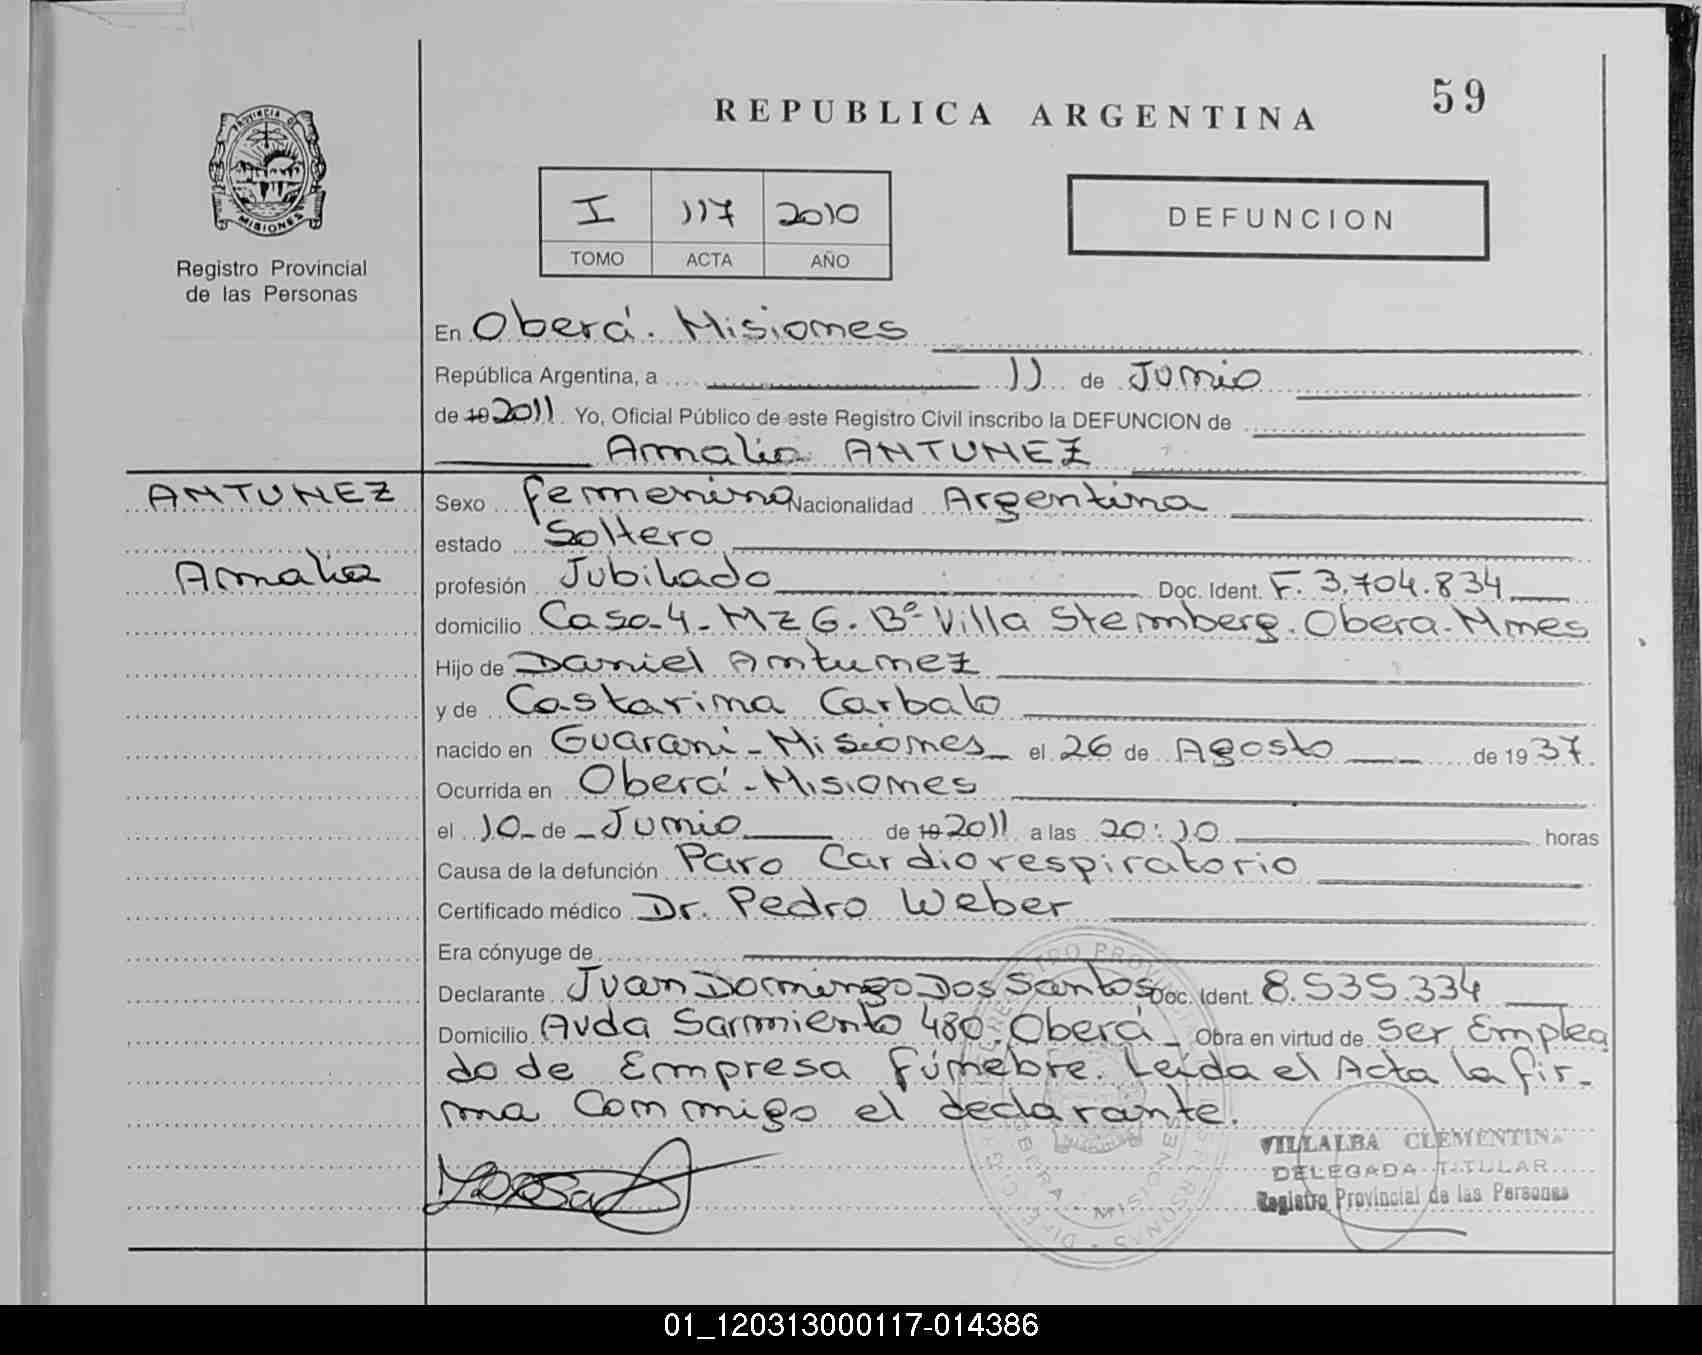 59
REPUBLICA ARGENTINA
PROVINCIA DE
MISIONES
Registro Provincial
de las Personas
I 117 2010
TOMO ACTA AÑO
DEFUNCION
En Oberá. Misiones
República Argentina, a 11 de Junio
de 19 2011 Yo, Oficial Público de este Registro Civil inscribo la DEFUNCION de
Amalia ANTUNEZ
ANTUNEZ
Amalia
Sexo femenino Nacionalidad Argentina
estado Soltero
profesión Jubilado Doc. Ident. F. 3.704.834
domicilio Casa-4-MZ G. Bº Villa Stemberg. Obera-Mnes
Hijo de Daniel Antunez
y de Castarina Carbalo
nacido en Guaraní-Misiones el 26 de Agosto de 1937.
Ocurrida en Oberá-Misiones
el 10 de Junio de 19 2011 a las 20:10 horas
Causa de la defunción Paro Cardiorespiratorio
Certificado médico Dr. Pedro Weber
Era cónyuge de
Declarante Juan Domingo Dos Santos Doc. Ident. 8.535.334
Domicilio Avda Sarmiento 480. Oberá Obra en virtud de Ser Emplea
do de Empresa fúnebre. Leída el Acta la fir-
ma Conmigo el declarante.
VILLALBA CLEMENTINA
DELEGADA TITULAR
Registro Provincial de las Personas
OBERA - MISIONES
01_120313000117-014386